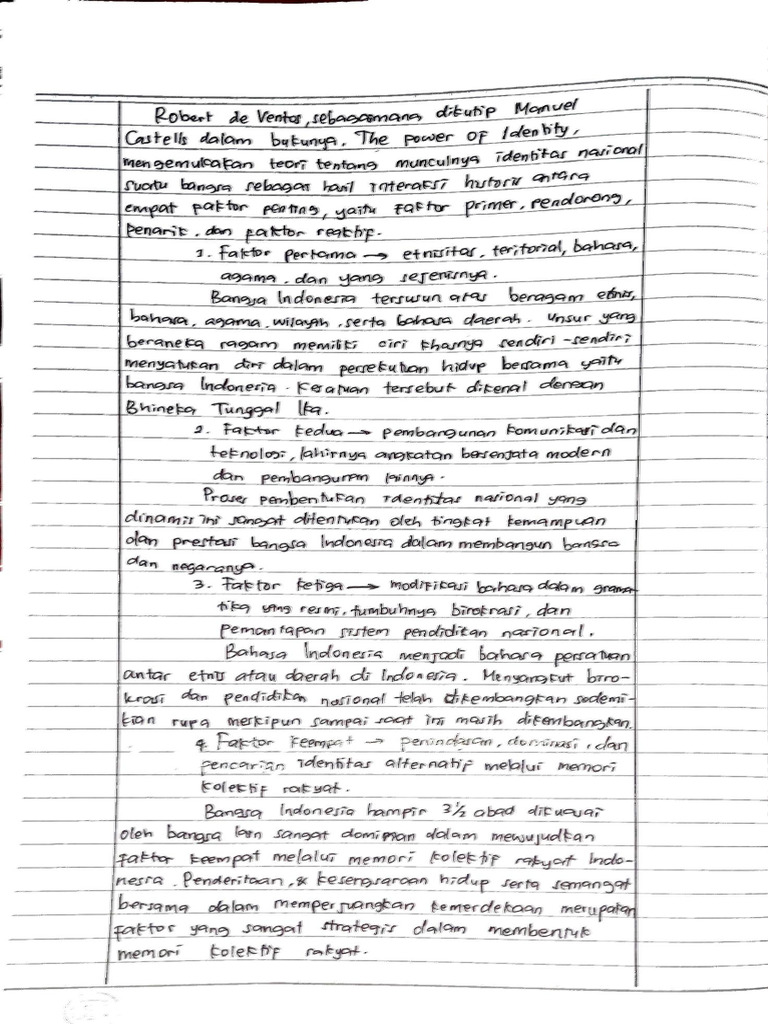 Robert de Ventos, sebagaimana dikutip Manuel
Castells dalam bukunya, The power of Identity,
mengemukakan teori tentang munculnya identitas nasional
suatu bangsa sebagai hasil interaksi historis antara
empat faktor penting, yaitu faktor primer, pendorong,
penarik, dan faktor reaktif.
1. Faktor pertama → etnisitas, teritorial, bahasa,
agama, dan yang sejenisnya.
Bangsa Indonesia tersusun atas beragam etnis,
bahasa, agama, wilayah, serta bahasa daerah. Unsur yang
beraneka ragam memiliki ciri khasnya sendiri-sendiri
menyatukan diri dalam persekutuan hidup bersama yaitu
bangsa Indonesia. Kesatuan tersebut dikenal dengan
Bhineka Tunggal Ika.
2. Faktor kedua → pembangunan komunikasi dan
teknologi, lahirnya angkatan bersenjata modern
dan pembangunan lainnya.
Proses pembentukan identitas nasional yang
dinamis ini sangat ditentukan oleh tingkat kemampuan
dan prestasi bangsa Indonesia dalam membangun bangsa
dan negaranya.
3. Faktor ketiga → modifikasi bahasa dalam grama-
tika yang resmi, tumbuhnya birokrasi, dan
pemantapan sistem pendidikan nasional.
Bahasa Indonesia menjadi bahasa persatuan
antar etnis atau daerah di Indonesia. Menyangkut biro-
krasi dan pendidikan nasional telah dikembangkan sedemi-
kian rupa meskipun sampai saat ini masih dikembangkan.
4. Faktor keempat → penindasan, dominasi, dan
pencarian identitas alternatif melalui memori
kolektif rakyat.
Bangsa Indonesia hampir 3 1/2 abad dikuasai
oleh bangsa lain sangat dominan dalam mewujudkan
faktor keempat melalui memori kolektif rakyat Indo-
nesia. Penderitaan, & kesengsaraan hidup serta semangat
bersama dalam memperjuangkan kemerdekaan merupakan
faktor yang sangat strategis dalam membentuk
memori kolektif rakyat.